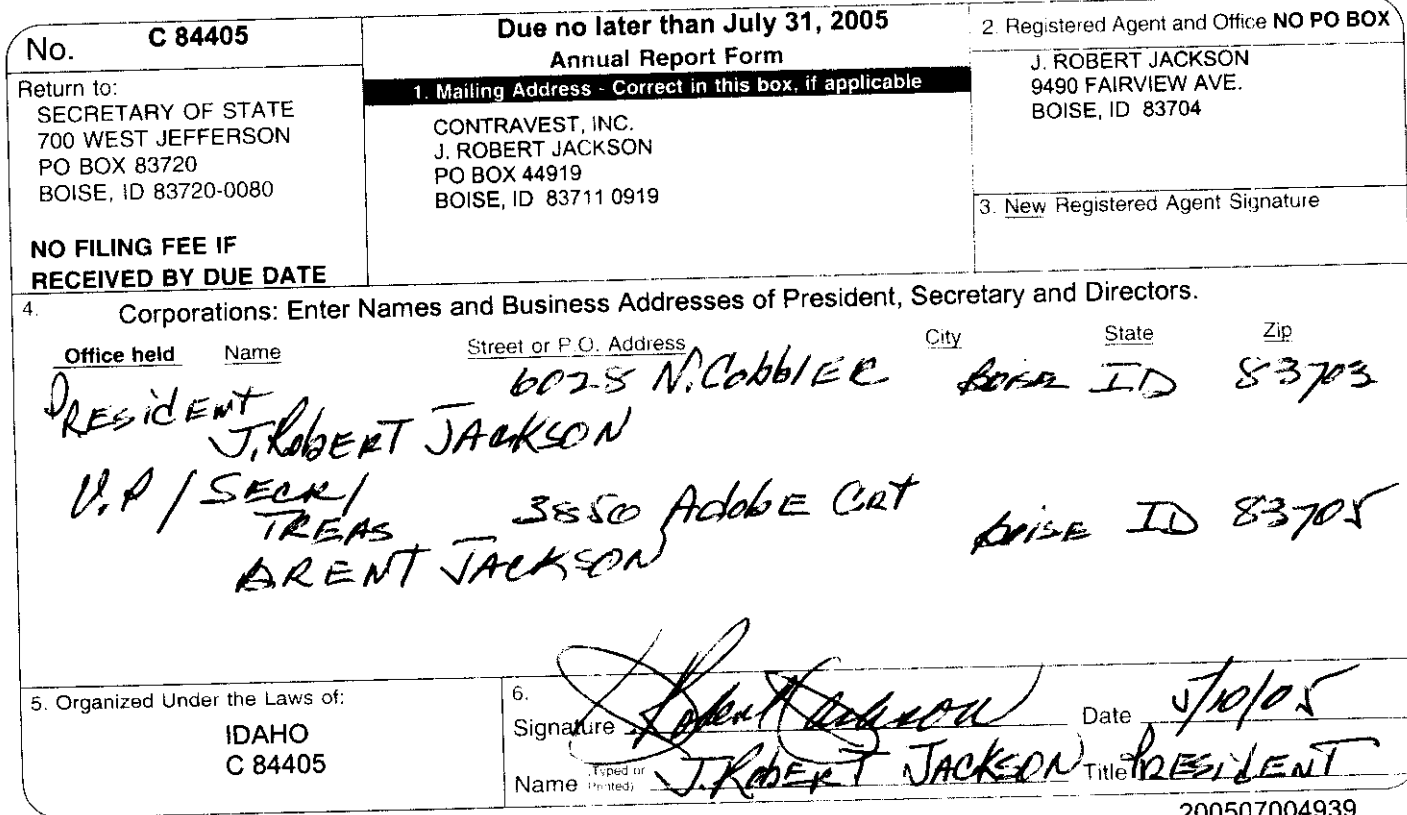 No. C 84405
Return to:
SECRETARY OF STATE
700 WEST JEFFERSON
PO BOX 83720
BOISE, ID 83720-0080
NO FILING FEE IF
RECEIVED BY DUE DATE
Due no later than July 31, 2005
Annual Report Form
1. Mailing Address - Correct in this box, if applicable
CONTRAVEST, INC.
J. ROBERT JACKSON
PO BOX 44919
BOISE, ID 83711 0919
2. Registered Agent and Office NO PO BOX
J. ROBERT JACKSON
9490 FAIRVIEW AVE.
BOISE, ID 83704
3. New Registered Agent Signature
4. Corporations: Enter Names and Business Addresses of President, Secretary and Directors.
Office held Name Street or P.O. Address City State Zip
PRESidENT 6028 N. CobblER BOISE ID 83703
J. RobERT JACKSON
V.P / SECR/ 3850 AdobE CRT BOISE ID 83705
TREAS
BRENT JACKSON
5. Organized Under the Laws of:
IDAHO
C 84405
6.
Signature Robert Jackson Date 5/10/05
Name (Typed or Printed) J. RobERT JACKSON Title PRESidENT
200507004939